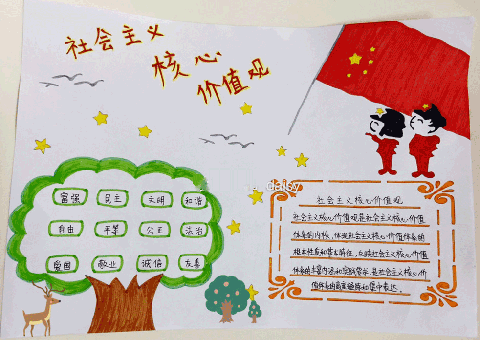 社会主义
核心
价值观
daisy
富强 民主 文明 和谐
自由 平等 公正 法治
爱国 敬业 诚信 友善
社会主义核心价值观
社会主义核心价值观是社会主义核心价值
体系的内核，体现社会主义核心价值体系的
根本性质和基本特征，反映社会主义核心价值
体系的丰富内涵和实践要求，是社会主义核心价
值体系的高度凝练和集中表达。